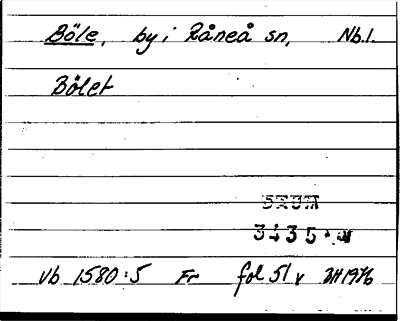 Böle, by i Råneå sn, Nb.l.
Bölet
3435
Vb 1580:5 Fr fol 51 v